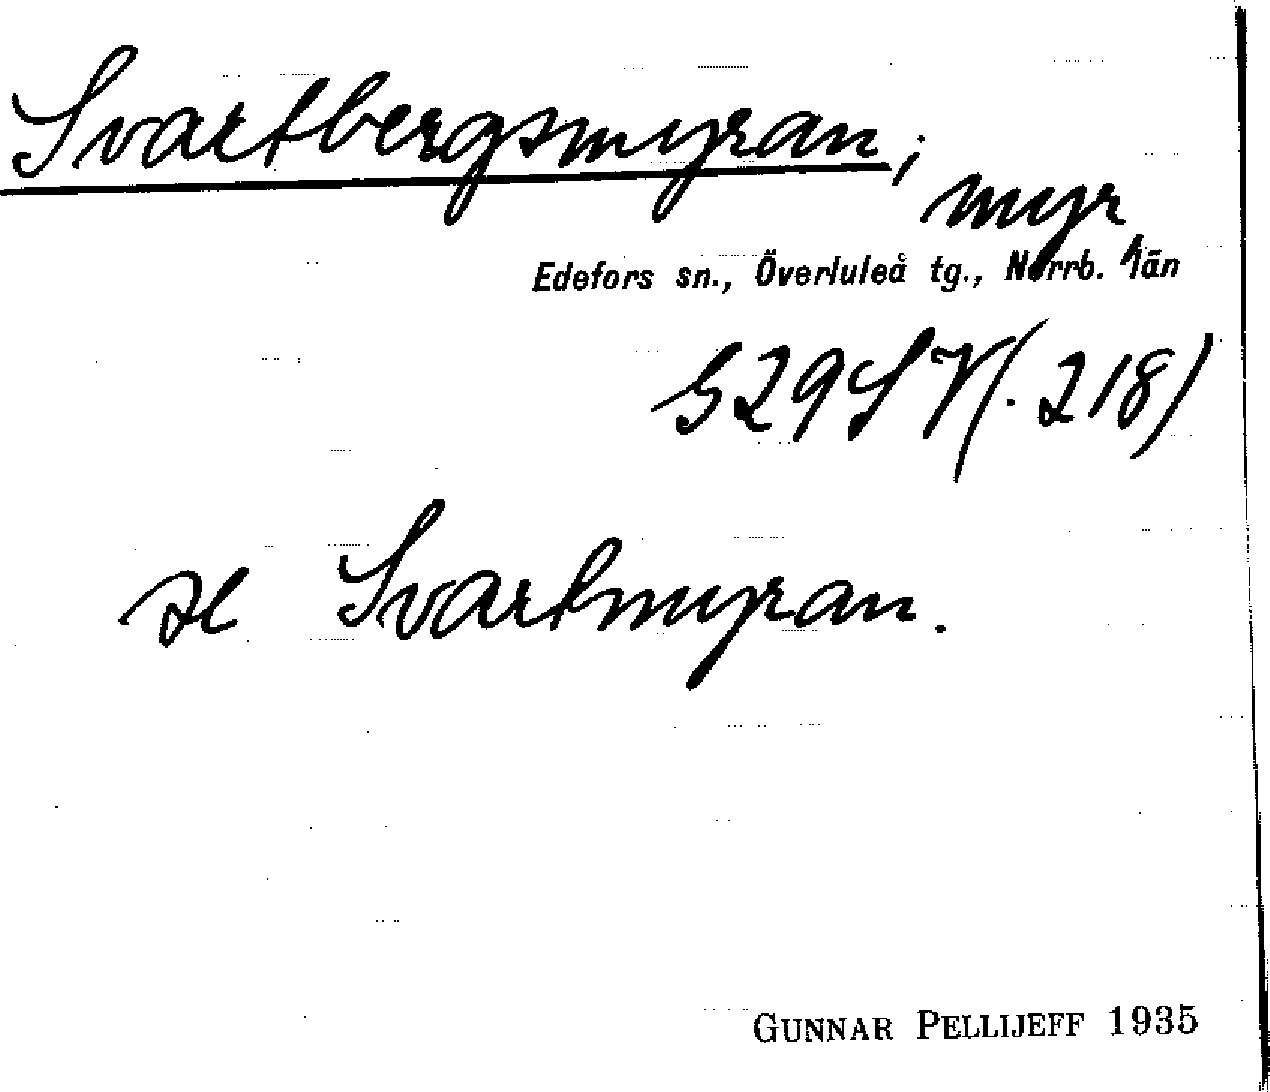 Svartbergsmyran;
myr
Edefors sn., Överluleå tg., Norrb. län
529 SV (. 218)
se Svartmyran.
GUNNAR PELLIJEFF 1935